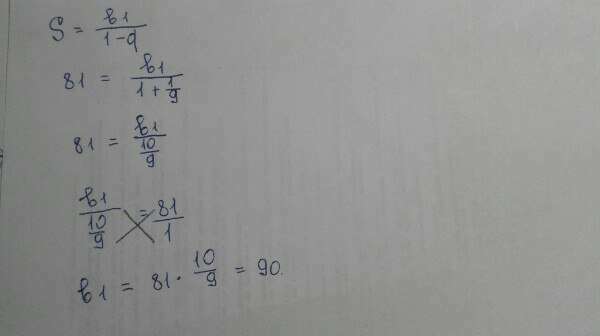 S = b1/(1-q)
81 = b1/(1+1/9)
81 = b1/(10/9)
b1/(10/9) = 81/1
b1 = 81 · 10/9 = 90.